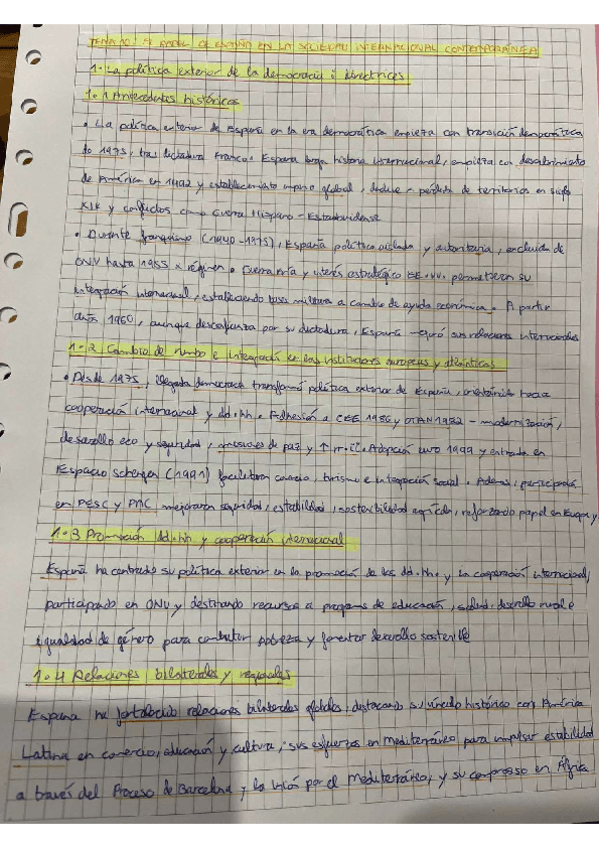 TEMA 10: PAPEL DE ESPAÑA EN LA SOCIEDAD INTERNACIONAL CONTEMPORÁNEA
1. La política exterior de la democracia: directrices
1.1 Antecedentes históricos
• La política exterior de España en la era democrática empieza con transición democrática
de 1975, tras dictadura Franco. España larga historia internacional, empieza con descubrimiento
de América en 1492 y establecimiento imperio global, declive - pérdida de territorios en siglo
XIX y conflictos como Guerra Hispano-Estadounidense
• Durante franquismo (1940-1975), España política aislada y autoritaria, excluida de
ONU hasta 1955 x régimen. Guerra fría y interés estratégico EE.UU. permitieron su
integración internacional, estableciendo bases militares a cambio de ayuda económica. A partir
años 1960, aunque desconfianza por su dictadura, España mejoró sus relaciones internacionales
1.2 Cambio de rumbo e integración en las instituciones europeas y atlánticas
• Desde 1975, llegada democracia transformó política exterior de España, orientándola hacia
cooperación internacional y dd.hh. Adhesión a CEE 1986 y OTAN 1982 - modernización,
desarrollo eco y seguridad, misiones de paz y ↑ Adopción euro 1999 y entrada en
Espacio Schengen (1991) facilitaron comercio, turismo e integración social. Además, participación
en PESC y PAC mejoraron seguridad, estabilidad, sostenibilidad agrícola, reforzando papel en Europa y
1.3 Promoción dd.hh y cooperación internacional
España ha centrado su política exterior en la promoción de los dd.hh. y la cooperación internacional,
participando en ONU y destinando recursos a programas de educación, salud, desarrollo rural e
igualdad de género para combatir pobreza y fomentar desarrollo sostenible
1.4 Relaciones bilaterales y regionales
España ha fortalecido relaciones bilaterales globales, destacando su vínculo histórico con América
Latina en comercio, educación y cultura; sus esfuerzos en mediterráneo para impulsar estabilidad
a través del Proceso de Barcelona y la Unión por el Mediterráneo, y su compromiso en África